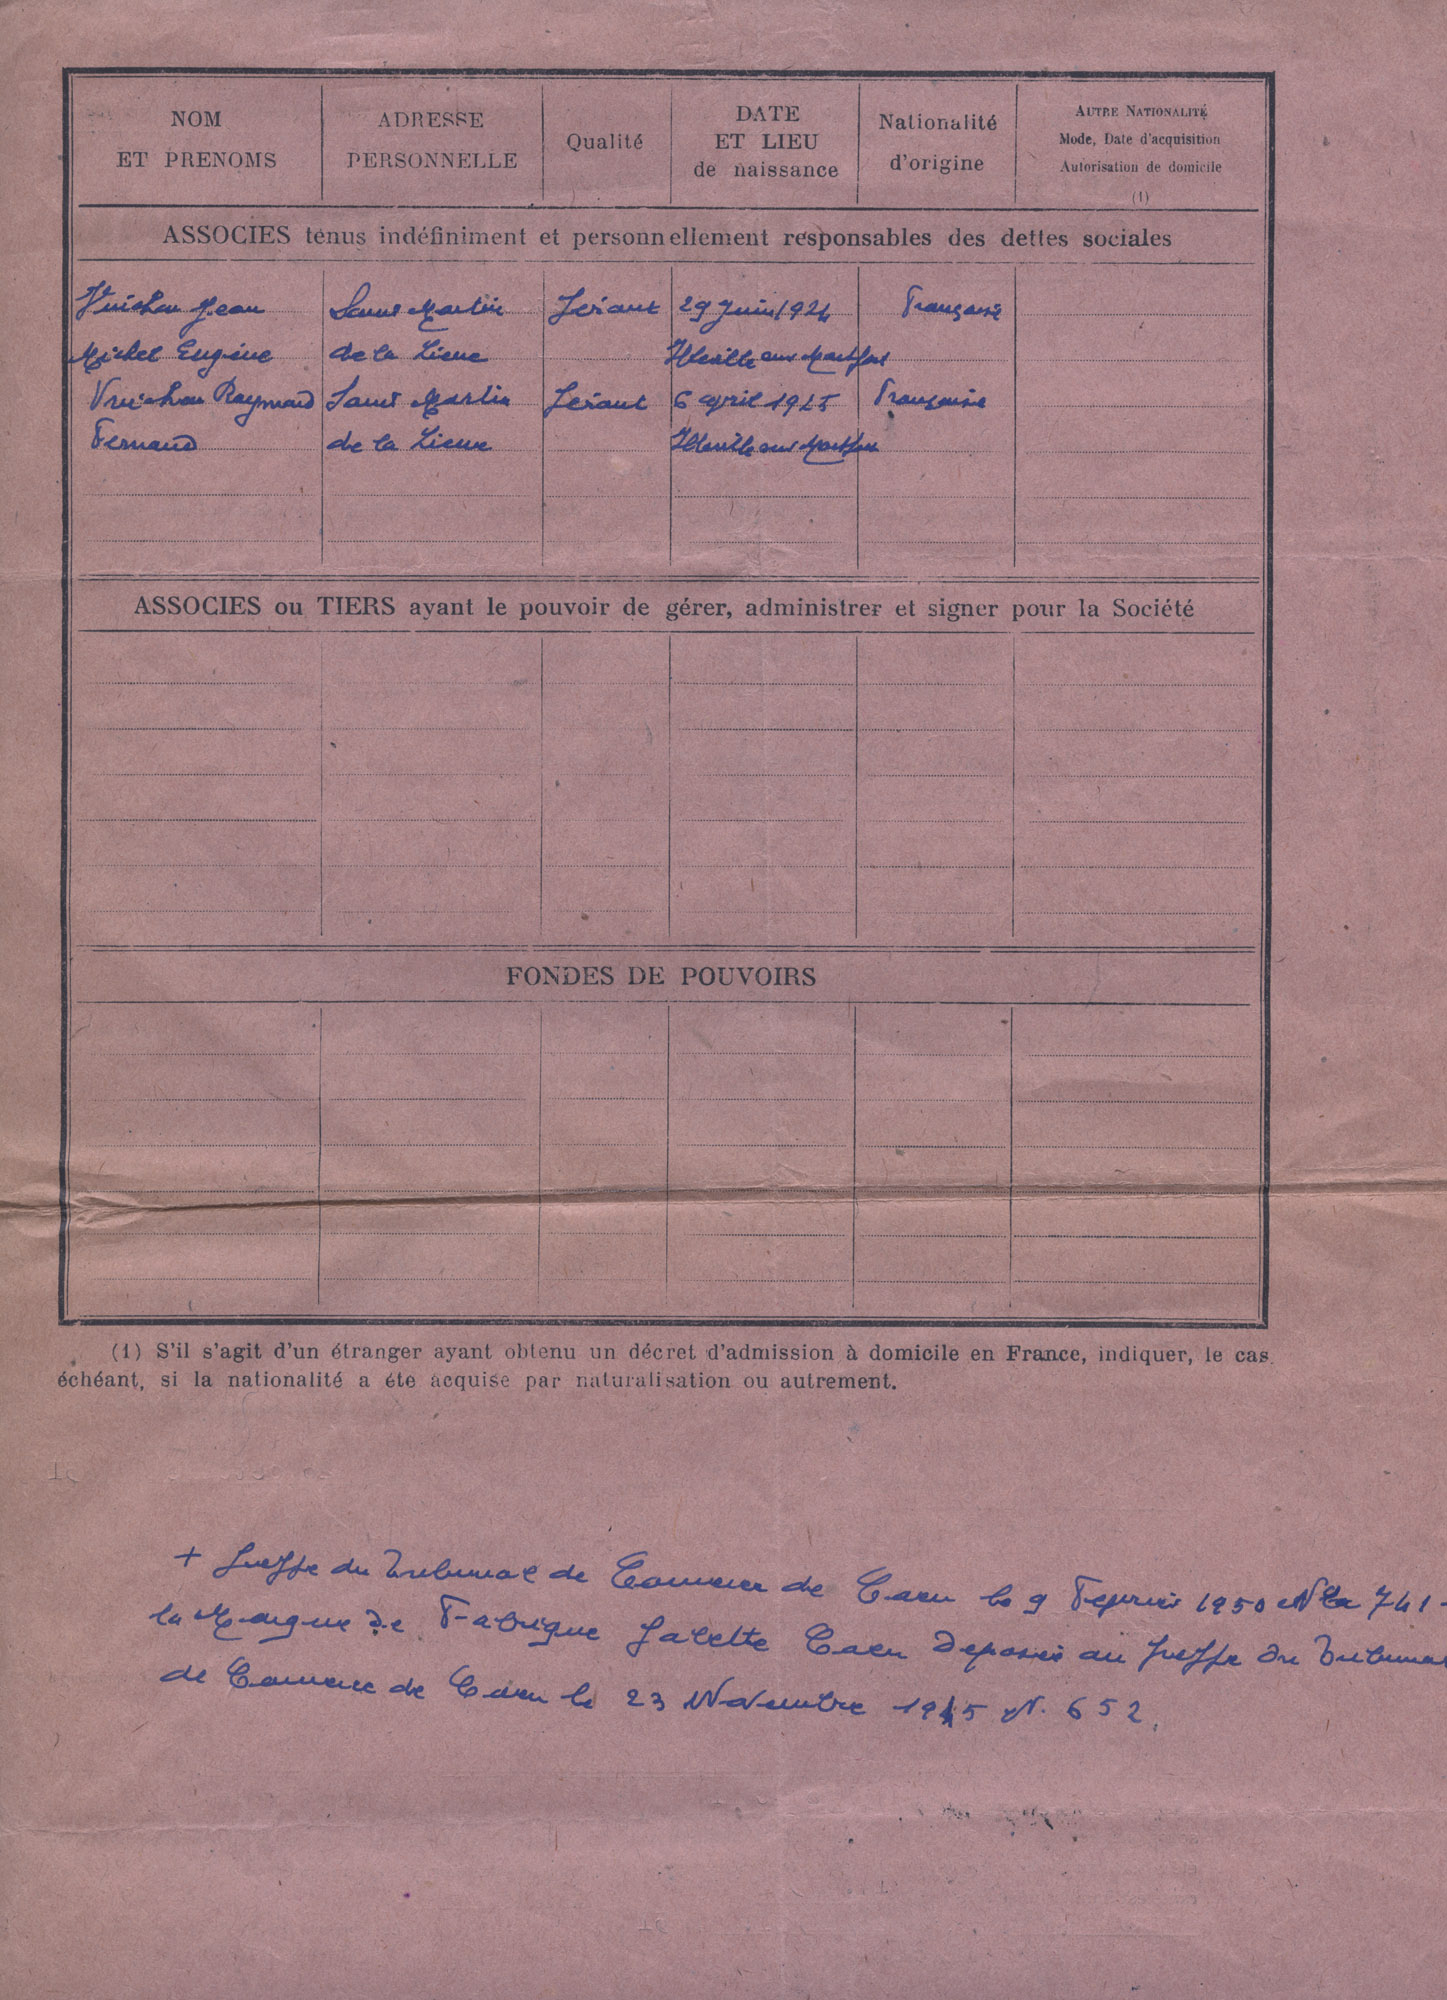 NOM
ET PRENOMS
ADRESSE
PERSONNELLE
Qualité
DATE
ET LIEU
de naissance
Nationalité
d'origine
AUTRE NATIONALITÉ
Mode, Date d'acquisition
Autorisation de domicile
(1)
ASSOCIES tenus indéfiniment et personnellement responsables des dettes sociales
Jean Saint Martin Gérant 29 Juin 1924 Française
Michel Eugène de la Lieue
Raymond Saint Martin Gérant 6 avril 1925 Française
Fernand de la Lieue
ASSOCIES ou TIERS ayant le pouvoir de gérer, administrer et signer pour la Société
FONDES DE POUVOIRS
(1) S'il s'agit d'un étranger ayant obtenu un décret d'admission à domicile en France, indiquer, le cas
échéant, si la nationalité a éte acquise par naturalisation ou autrement.
+ Greffe du Tribunal de Commerce de Caen le 9 Fevrier 1950 741 -
la Marque de Fabrique Galette Caen Deposée au Greffe du Tribunal
de Commerce de Caen le 23 Novembre 1945 N. 652.